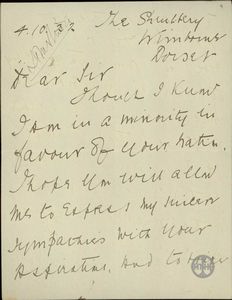 4.10.32 The
Wimborne
Dorset
Dear Sir
Though I know
I am in a minority in
favour of your
I hope you will allow
me to express my sincere
sympathies with your
aspirations, and to